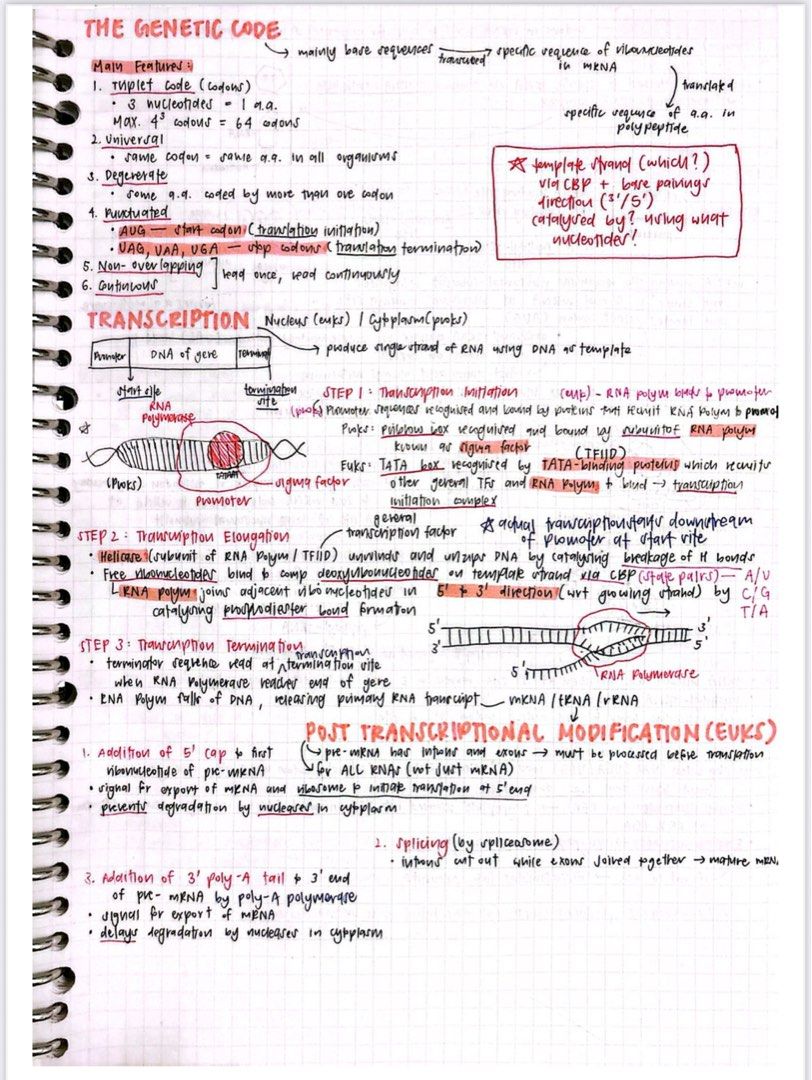 THE GENETIC CODE
mainly base sequences transcribed specific sequence of ribonucleotides
in mRNA
translated
specific sequence of a.a. in
polypeptide
Main Features:
1. Triplet code (codons)
• 3 nucleotides = 1 a.a.
Max. 4³ codons = 64 codons
2. Universal
• same codon = same a.a. in all organisms
3. Degenerate
• some a.a. coded by more than one codon
4. Punctuated
• AUG — start codon (translation initiation)
• UAG, UAA, UGA — stop codons (translation termination)
5. Non-overlapping
6. Continuous
read once, read continuously
☆ template strand (which?)
via CBP + base pairings
direction (3'/5')
catalysed by? using what
nucleotides?
TRANSCRIPTION Nucleus (euks) / Cytoplasm (proks)
produce single strand of RNA using DNA as template
Promoter DNA of gene Terminator
start site termination
site
RNA
Polymerase
(Proks)
TATAAT
sigma factor
Promoter
STEP 1: Transcription Initiation (euk) - RNA polym binds to promoter
(prok) Promoter sequences recognised and bound by proteins that recruit RNA Polym to promoter
Proks: Pribnow box recognised and bound by subunit of RNA polym
known as sigma factor (TFIID)
Euks: TATA box recognised by TATA-binding proteins which recruits
other general TFs and RNA Polym to bind → transcription
initiation complex
general
transcription factor
☆ actual transcription starts downstream
of promoter at start site
STEP 2: Transcription Elongation
• Helicase (subunit of RNA Polym / TFIID) unwinds and unzips DNA by catalysing breakage of H bonds
• Free ribonucleotides bind to comp deoxyribonucleotides on template strand via CBP (state pairs) — A/U
C/G
T/A
RNA polym joins adjacent ribonucleotides in 5' to 3' direction (wrt growing strand) by
catalysing phosphodiester bond formation
5' 3'
3' 5'
5'
RNA Polymerase
STEP 3: Transcription Termination
• terminator sequence read at transcription termination site
when RNA Polymerase reaches end of gene
• RNA Polym falls of DNA, releasing primary RNA transcript — mRNA / tRNA / rRNA
POST TRANSCRIPTIONAL MODIFICATION (EUKS)
pre-mRNA has introns and exons → must be processed before translation
for ALL RNAs (not just mRNA)
1. Addition of 5' cap to first
ribonucleotide of pre-mRNA
• signal for export of mRNA and ribosome to initiate translation at 5' end
• prevents degradation by nucleases in cytoplasm
2. Splicing (by spliceosome)
• introns cut out while exons joined together → mature mRNA
3. Addition of 3' poly-A tail to 3' end
of pre-mRNA by poly-A polymerase
• signal for export of mRNA
• delays degradation by nucleases in cytoplasm